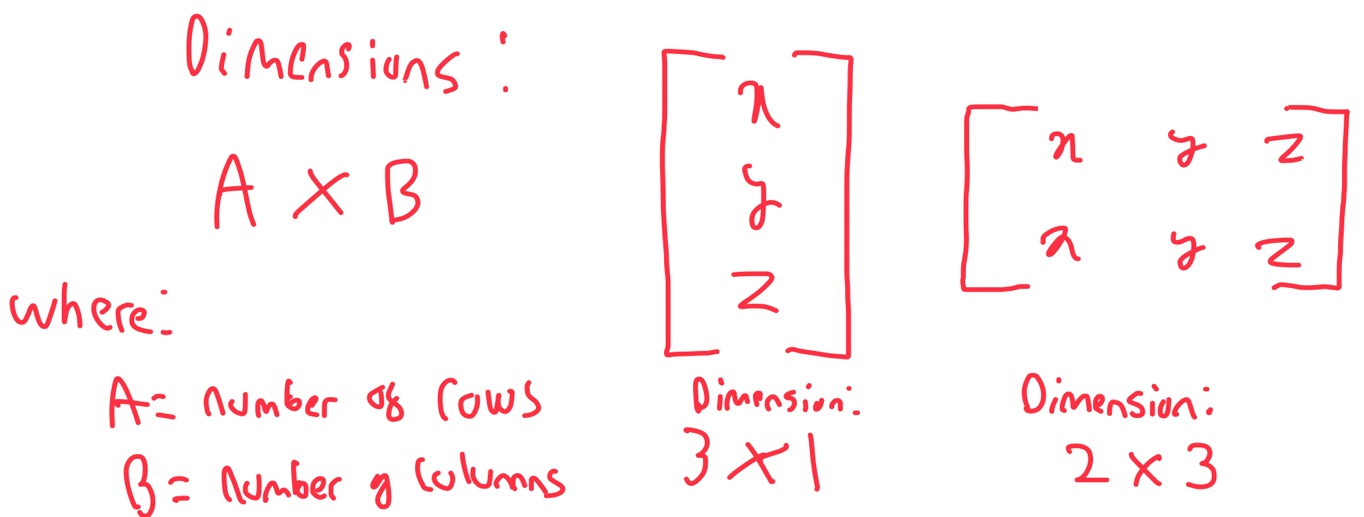 Dimensions:
A × B
where:
A = number of rows
B = number of columns
x
y
z
Dimension:
3 × 1
x y z
x y z
Dimension:
2 × 3